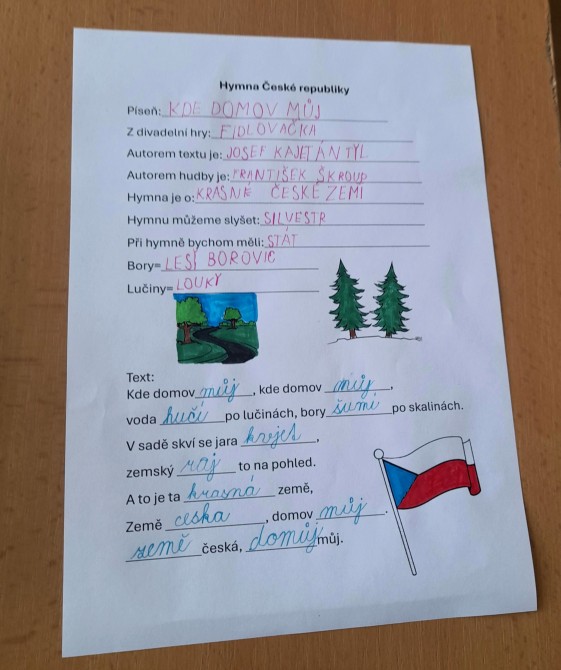 Hymna České republiky
Píseň: KDE DOMOV MŮJ
Z divadelní hry: FIDLOVAČKA
Autorem textu je: JOSEF KAJETÁN TYL
Autorem hudby je: FRANTIŠEK ŠKROUP
Hymna je o: KRÁSNÉ ČESKÉ ZEMI
Hymnu můžeme slyšet: SILVESTR
Při hymně bychom měli: STÁT
Bory= LESY BOROVIC
Lučiny= LOUKY
Text:
Kde domov můj, kde domov můj,
voda hučí po lučinách, bory šumí po skalinách.
V sadě skví se jara krejct,
zemský raj to na pohled.
A to je ta krasná země,
Země ceska, domov můj.
země česká, domůj můj.